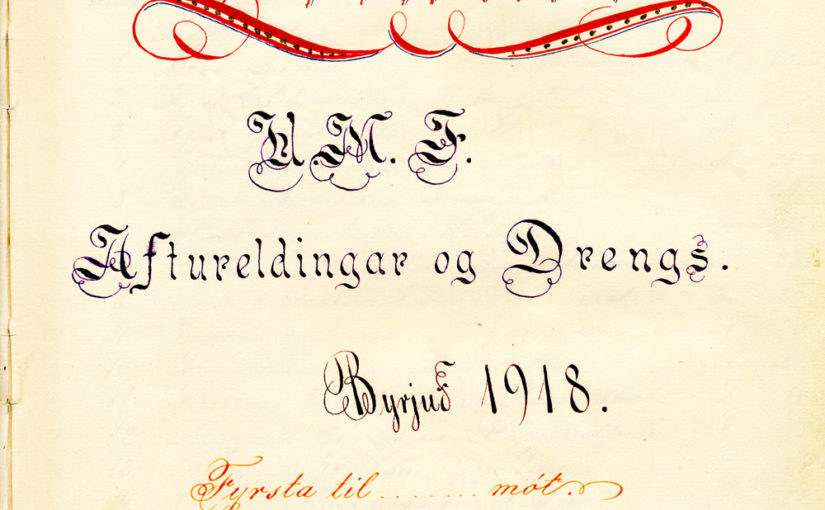 U.M.F.
Aftureldingar og Drengs.
Byrjuð 1918.
Fyrsta til ........ mót.